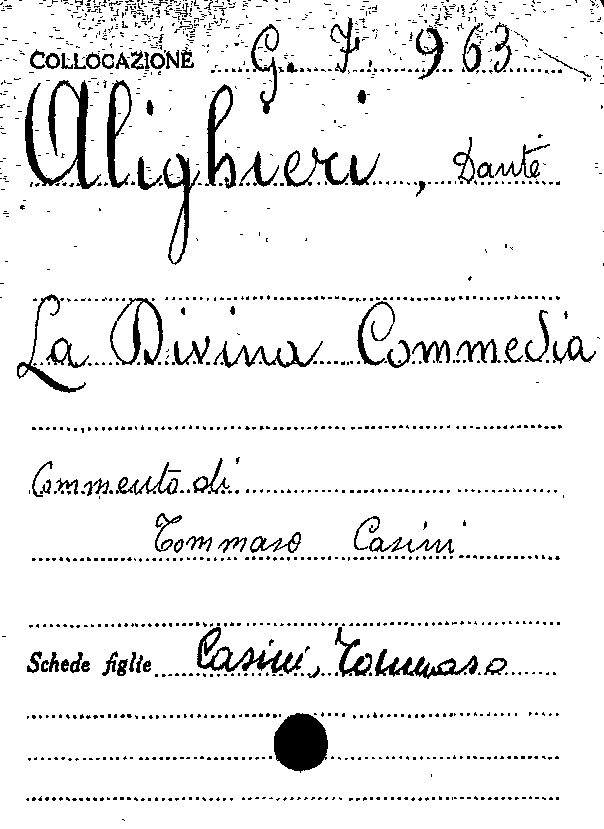 COLLOCAZIONE G. 7. 963
Alighieri, Dante
La Divina Commedia
Commento di
Tommaso Casini
Schede figlie Casini, Tommaso